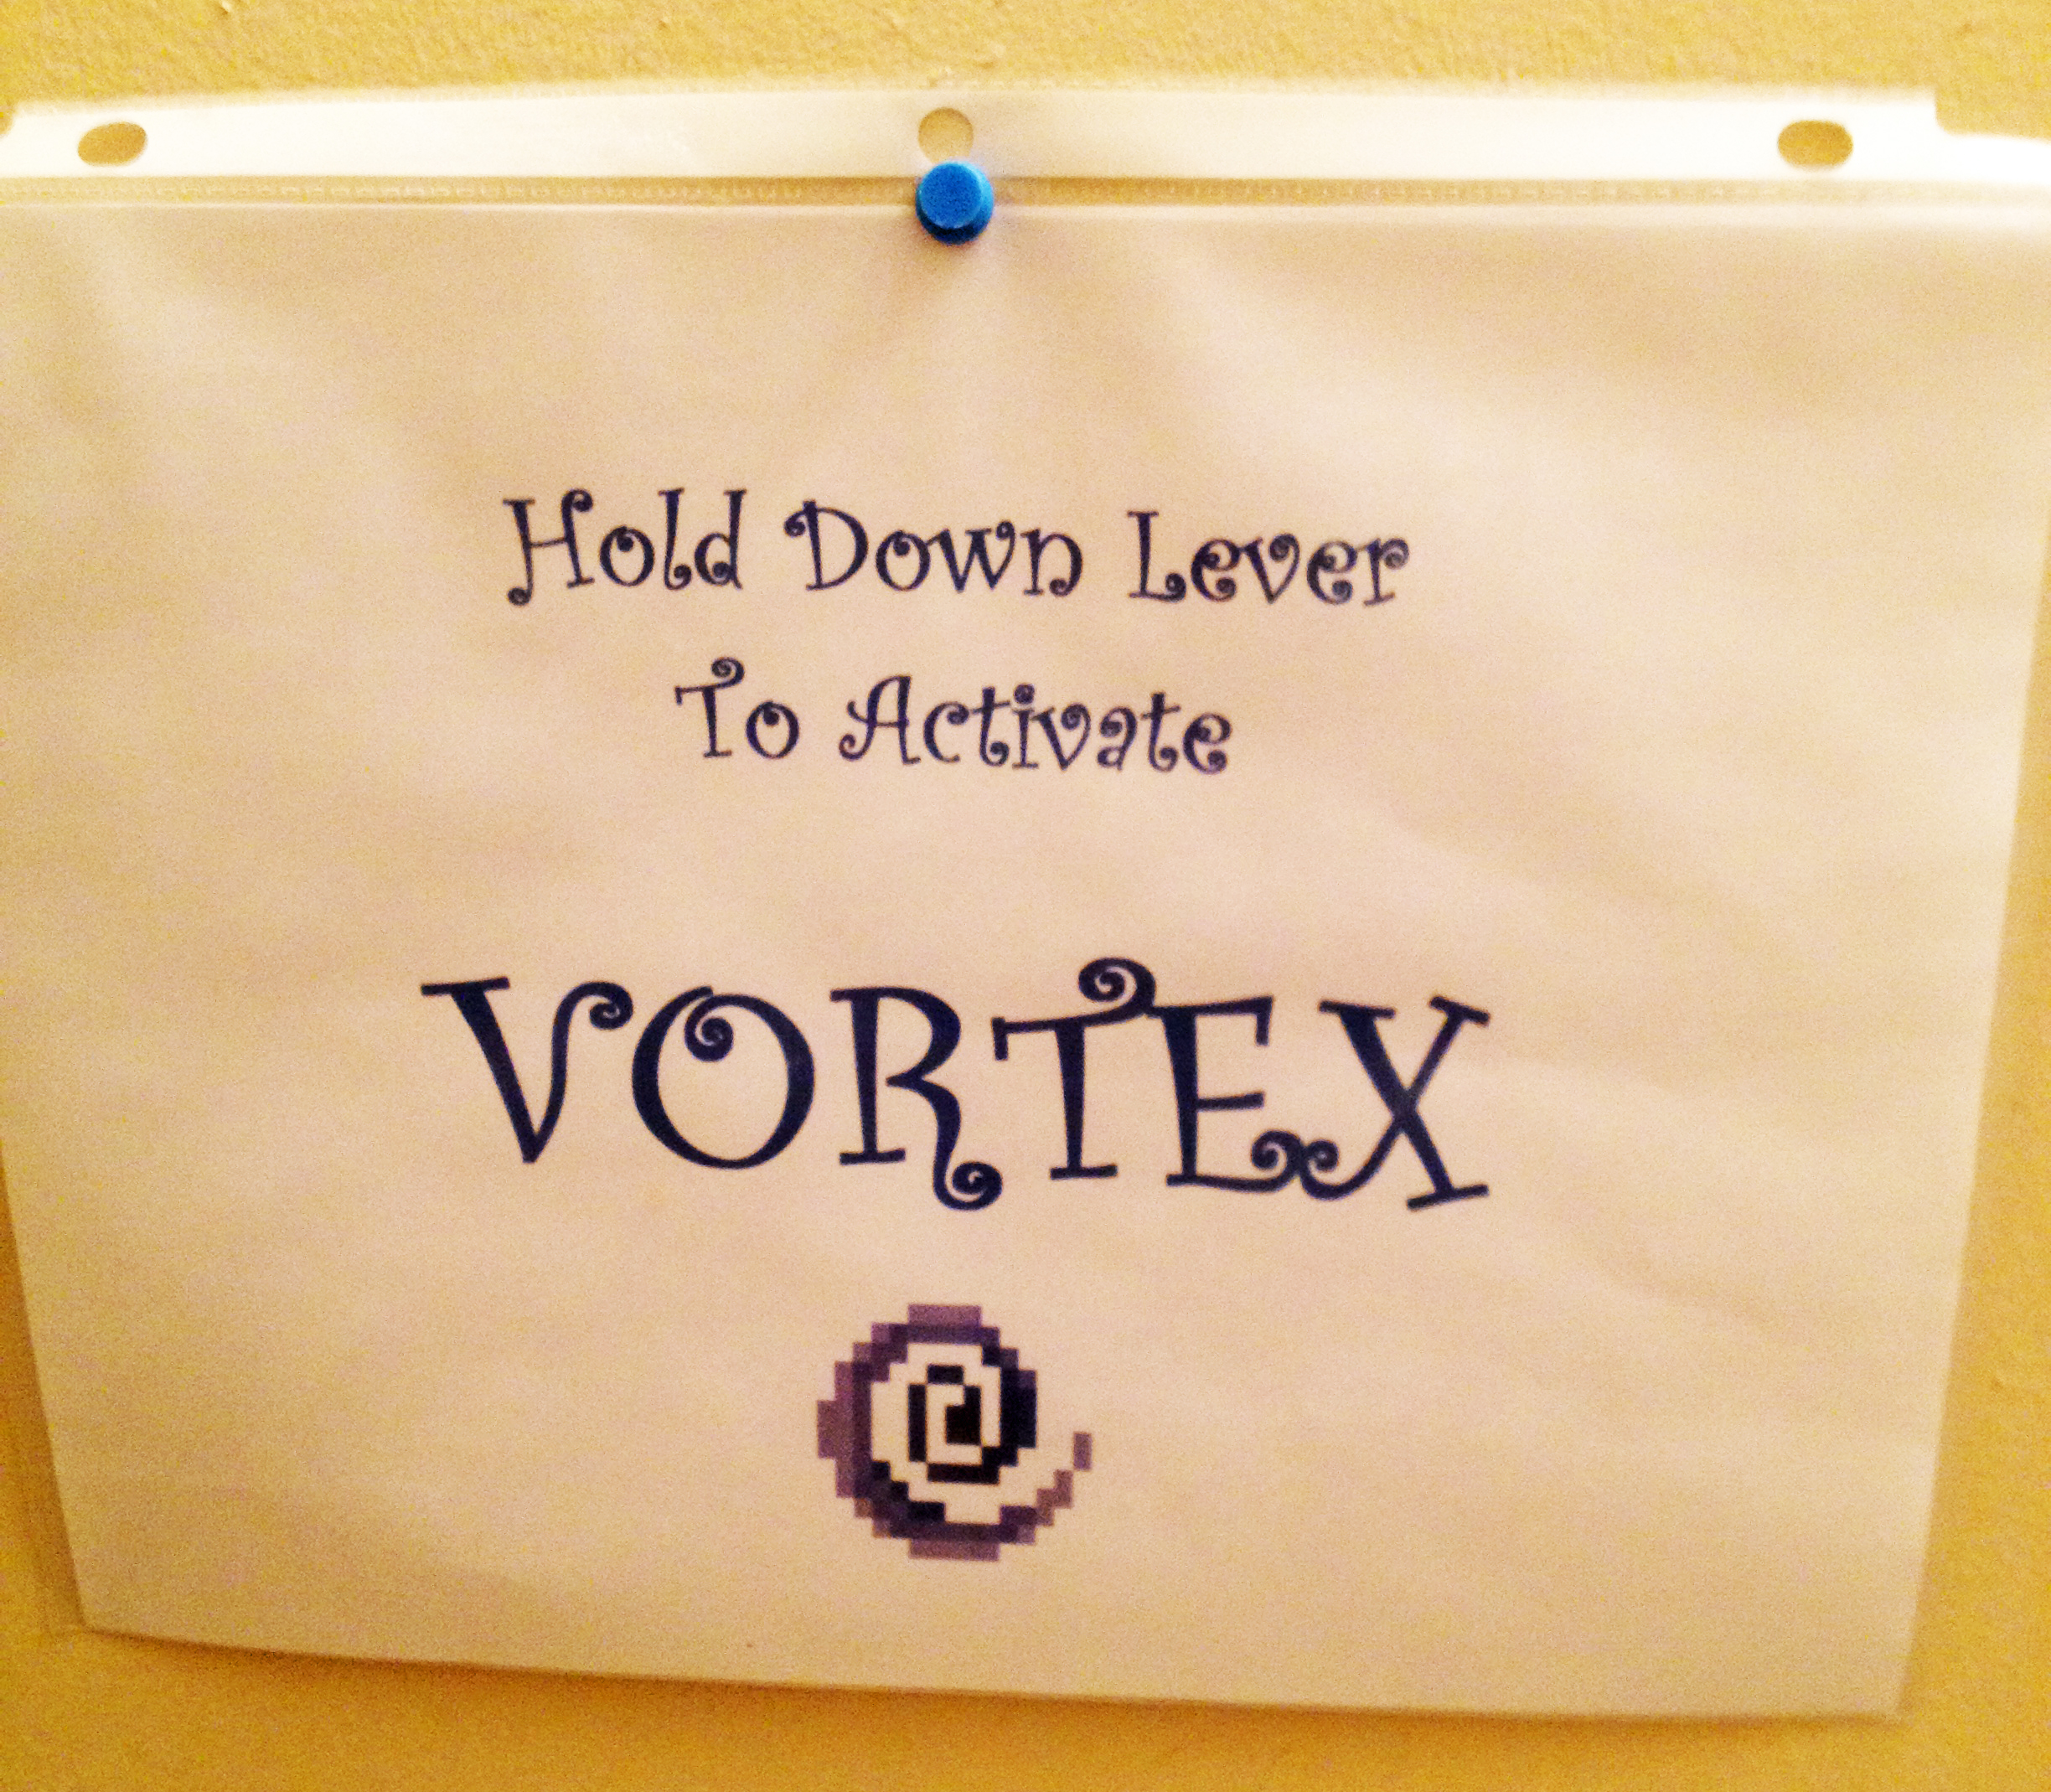 Hold Down Lever
To Activate
VORTEX